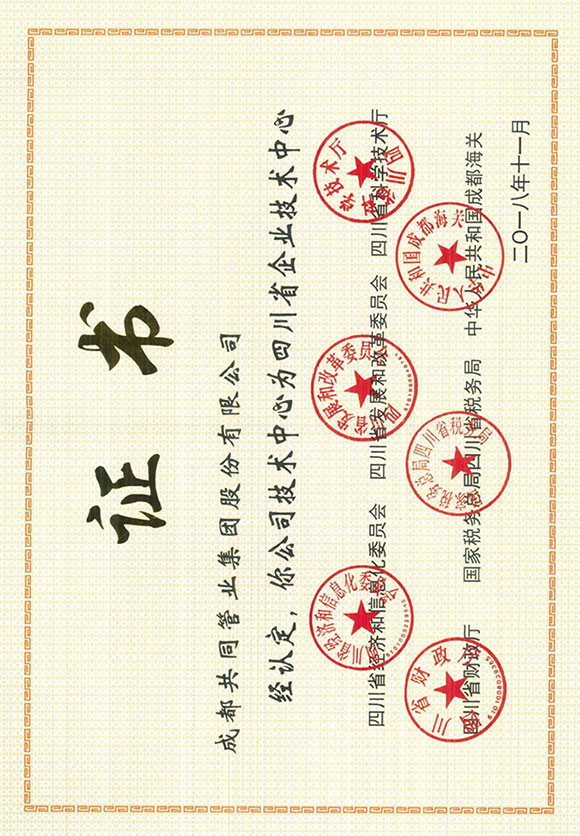 证书
成都共同管业集团股份有限公司
经认定，你公司技术中心为四川省企业技术中心
四川省经济和信息化委员会 四川省发展和改革委员会 四川省科学技术厅
四川省财政厅 国家税务总局四川省税务局 中华人民共和国成都海关
二〇一八年十一月